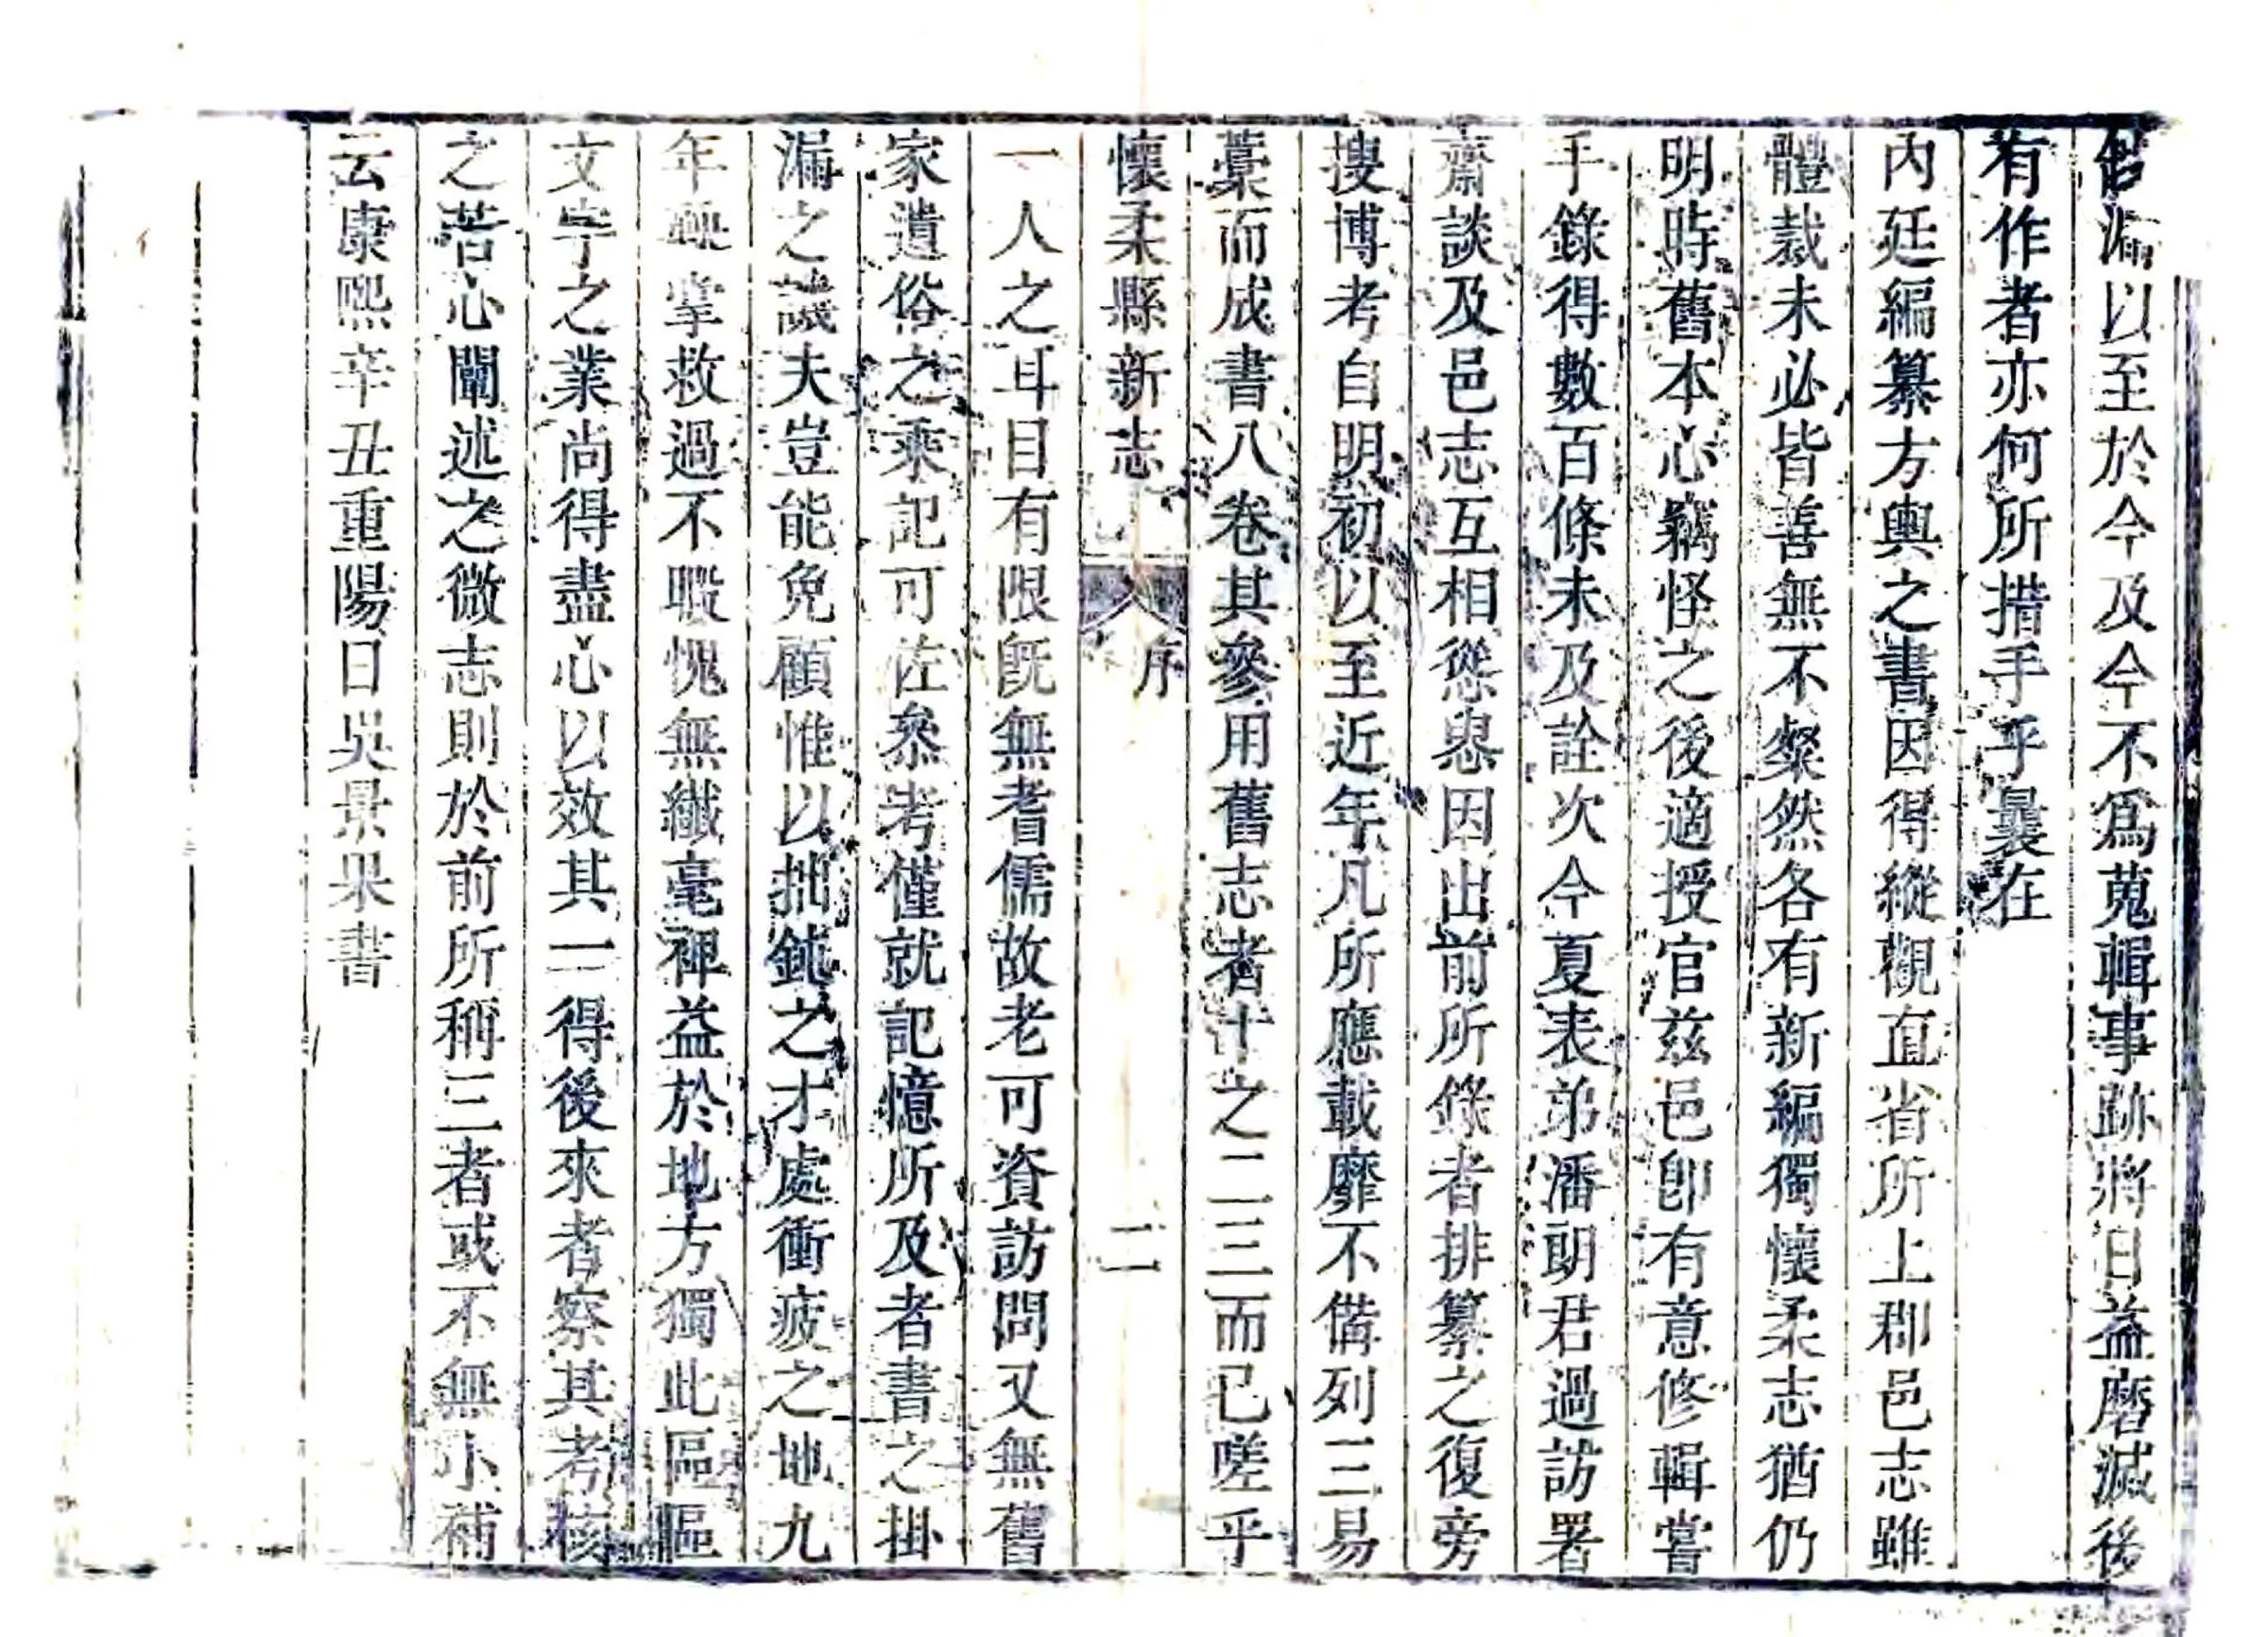 漏以至於今及今不爲蒐輯事跡將日益磨滅後
有作者亦何所措手乎曩在
內廷編纂方輿之書因得縱觀直省所上郡邑志雖
體裁未必皆善無不粲然各有新編獨懷柔志猶仍
明時舊本心竊怪之後適授官茲邑卽有意修輯嘗
手錄得數百條未及詮次今夏表弟潘朗君過訪署
齋談及邑志互相慫恿因出前所錄者排纂之復旁
搜博考自明初以至近年凡所應載靡不備列三易
藁而成書八卷其參用舊志者十之二三而已嗟乎
懷柔縣新志 序 二
一人之耳目有限旣無耆儒故老可資訪問又無舊
家遺俗之乘記可佐叅考僅就記憶所及者書之掛
漏之譏夫豈能免顧惟以拙鈍之才處衝疲之地九
年鞅掌救過不暇愧無纖毫裨益於地方獨此區區
文字之業尚得盡心以效其一得後來者察其考核
之苦心闡述之微志則於前所稱三者或不無小補
云康熙辛丑重陽日吳景果書